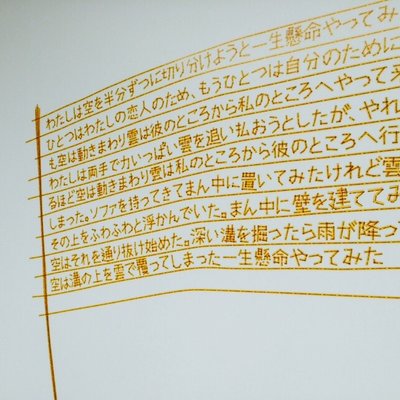 わたしは空を半分ずつに切り分けようと一生懸命やってみ
ひとつはわたしの恋人のため、もうひとつは自分のために
も空は動きまわり雲は彼のところから私のところへやって
わたしは両手で力いっぱい雲を追い払おうとしたが、やれ
るほど空は動きまわり雲は私のところから彼のところへ行
しまった。ソファを持ってきてまん中に置いてみたけれど雲
その上をふわふわと浮かんでいた。まん中に壁を建ててみ
空はそれを通り抜け始めた。深い溝を掘ったら雨が降っ
空は溝の上を雲で覆ってしまった一生懸命やってみた